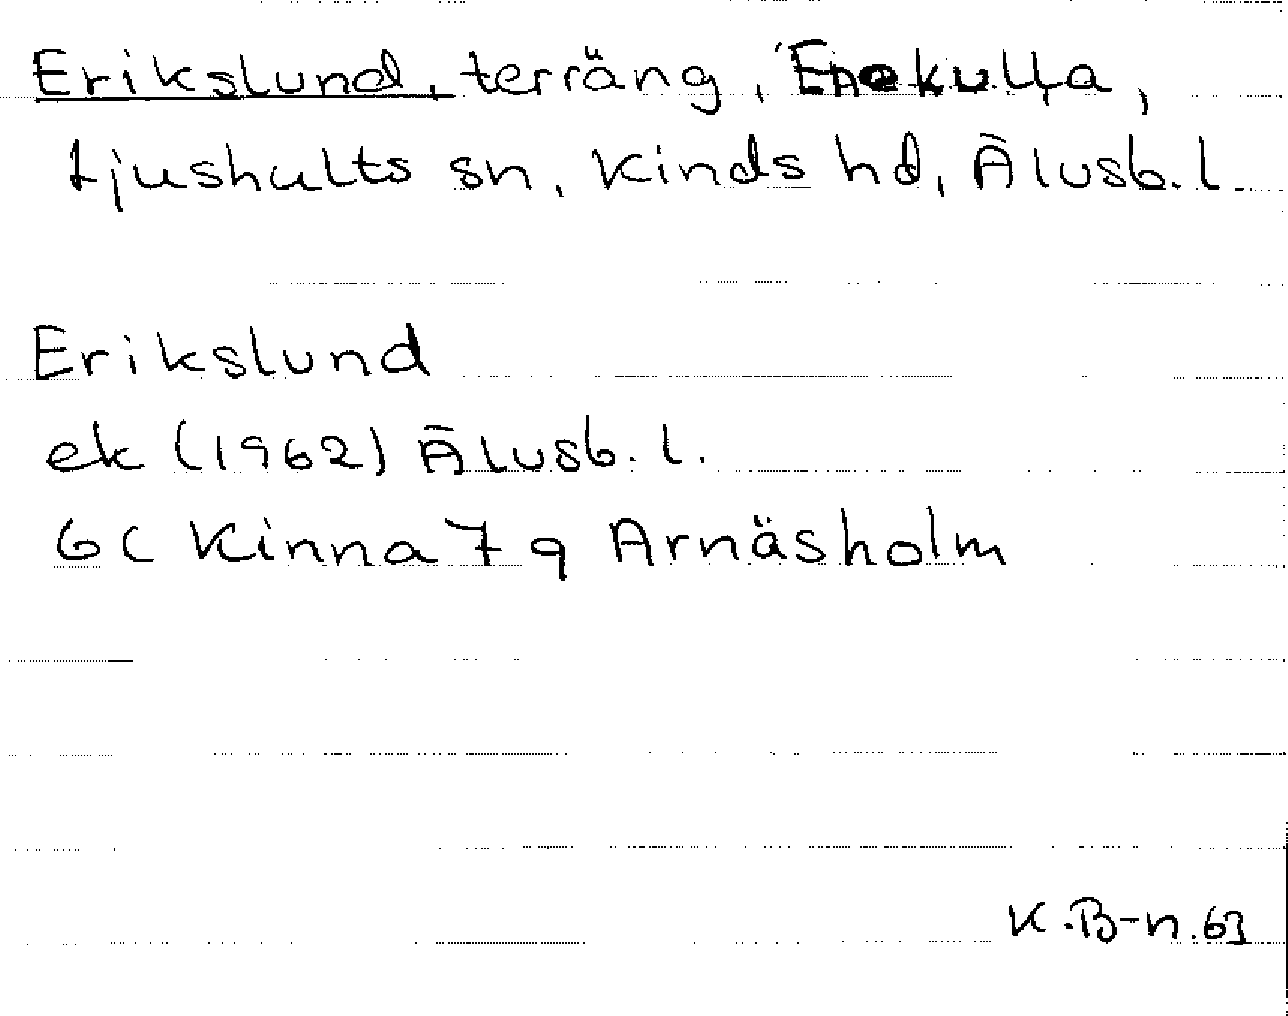 Erikslund, terräng, Enekulla,
Ljushults sn, Kinds hd, Älvsb. l.
Erikslund
ek (1962) Älvsb. l.
6C Kinna 7 g Arnäsholm
K.B-n.63